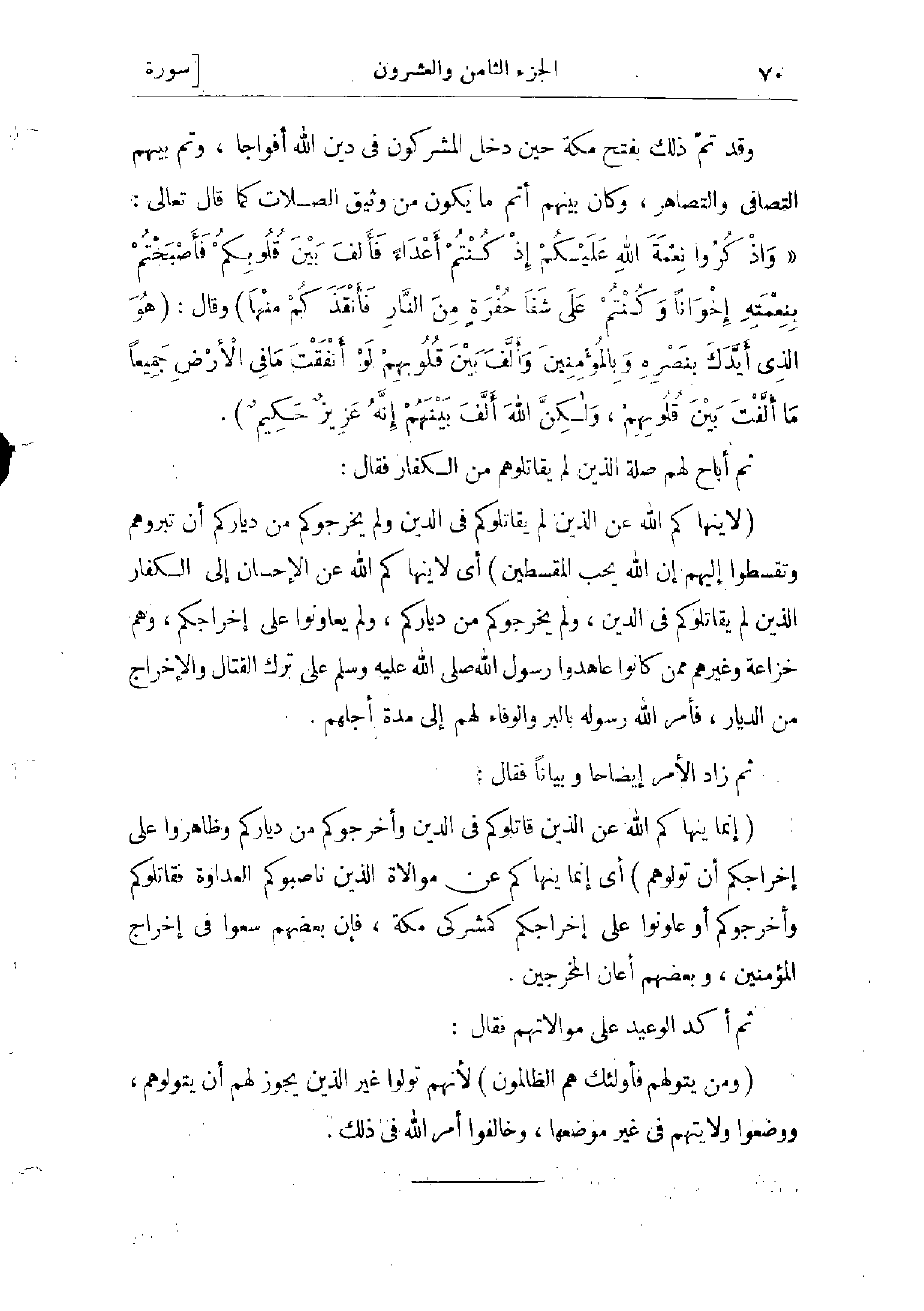 ٧٠ الجزء الثامن والعشرون [سورة
وقد تمّ ذلك بفتح مكة حين دخل المشركون فى دين الله أفواجا ، وتم بينهم
التصافى والتصاهر ، وكان بينهم أتم ما يكون من وثيق الصلات كما قال تعالى :
« وَاذْكُرُوا نِعْمَةَ اللهِ عَلَيْكُمْ إِذْ كُنْتُمْ أَعْدَاءً فَأَلفَ بَيْنَ قُلُوبِكُمْ فَأَصْبَحْتُمْ
بِنِعْمَتِهِ إِخْوَانًا وَكُنْتُمْ عَلَى شَفَا حُفْرَةٍ مِنَ النَّارِ فَأَنْقَذَكُمْ مِنْهَا) وقال : (هُوَ
الذِى أَيَّدَكَ بِنَصْرِهِ وَبِالْمُؤْمِنِينَ وَأَلَّفَ بَيْنَ قُلُوبِهِمْ لَوْ أَنْفَقْتَ مَافِى الْأَرْضِ جَمِيعاً
مَا أَلَّفْتَ بَيْنَ قُلُوبِهِمْ ، وَلٰكِنَّ اللهَ أَلَّفَ بَيْنَهُمْ إِنَّهُ عَزِيزٌ حَكِيمٌ ) .
ثم أباح لهم صلة الذين لم يقاتلوهم من الكفار فقال :
( لاينهاكم الله عن الذين لم يقاتلوكم فى الدين ولم يخرجوكم من دياركم أن تبروهم
وتقسطوا إليهم إن الله يحب المقسطين ) أى لاينهاكم الله عن الإحسان إلى الكفار
الذين لم يقاتلوكم فى الدين ، ولم يخرجوكم من دياركم ، ولم يعاونوا على إخراجكم ، وهم
خزاعة وغيرهم ممن كانوا عاهدوا رسول الله صلى الله عليه وسلم على ترك القتال والإخراج
من الديار ، فأمر الله رسوله بالبر والوفاء لهم إلى مدة أجلهم .
ثم زاد الأمر إيضاحا وبياناً فقال :
( إنما ينهاكم الله عن الذين قاتلوكم فى الدين وأخرجوكم من دياركم وظاهروا على
إخراجكم أن تولوهم ) أى إنما ينهاكم عن موالاة الذين ناصبوكم العداوة فقاتلوكم
وأخرجوكم أو عاونوا على إخراجكم كمشركى مكة ، فإن بعضهم سعوا فى إخراج
المؤمنين ، وبعضهم أعان المخرجين .
ثم أكد الوعيد على موالاتهم فقال :
( ومن يتولهم فأولئك هم الظالمون ) لأنهم تولوا غير الذين يجوز لهم أن يتولوهم ،
ووضعوا ولايتهم فى غير موضعها ، وخالفوا أمر الله فى ذلك .